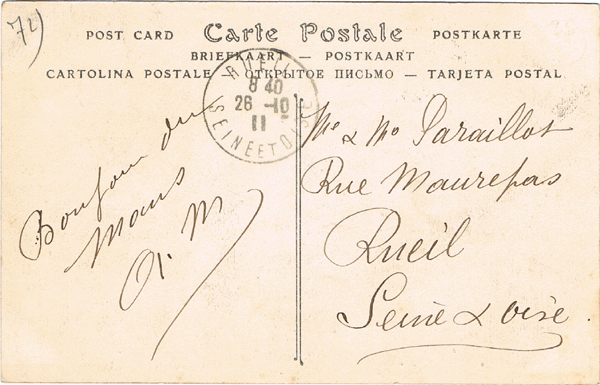 72)
POST CARD Carte Postale POSTKARTE
BRIEFKAART — POSTKAART
CARTOLINA POSTALE — ОТКРЫТОЕ ПИСЬМО — TARJETA POSTAL
RUEIL
8 40
26 -10
11
SEINE ET OISE
Bonjour du
Mans
A. M
Me & Mr Paraillot
Rue Maurepas
Rueil
Seine & Oise.